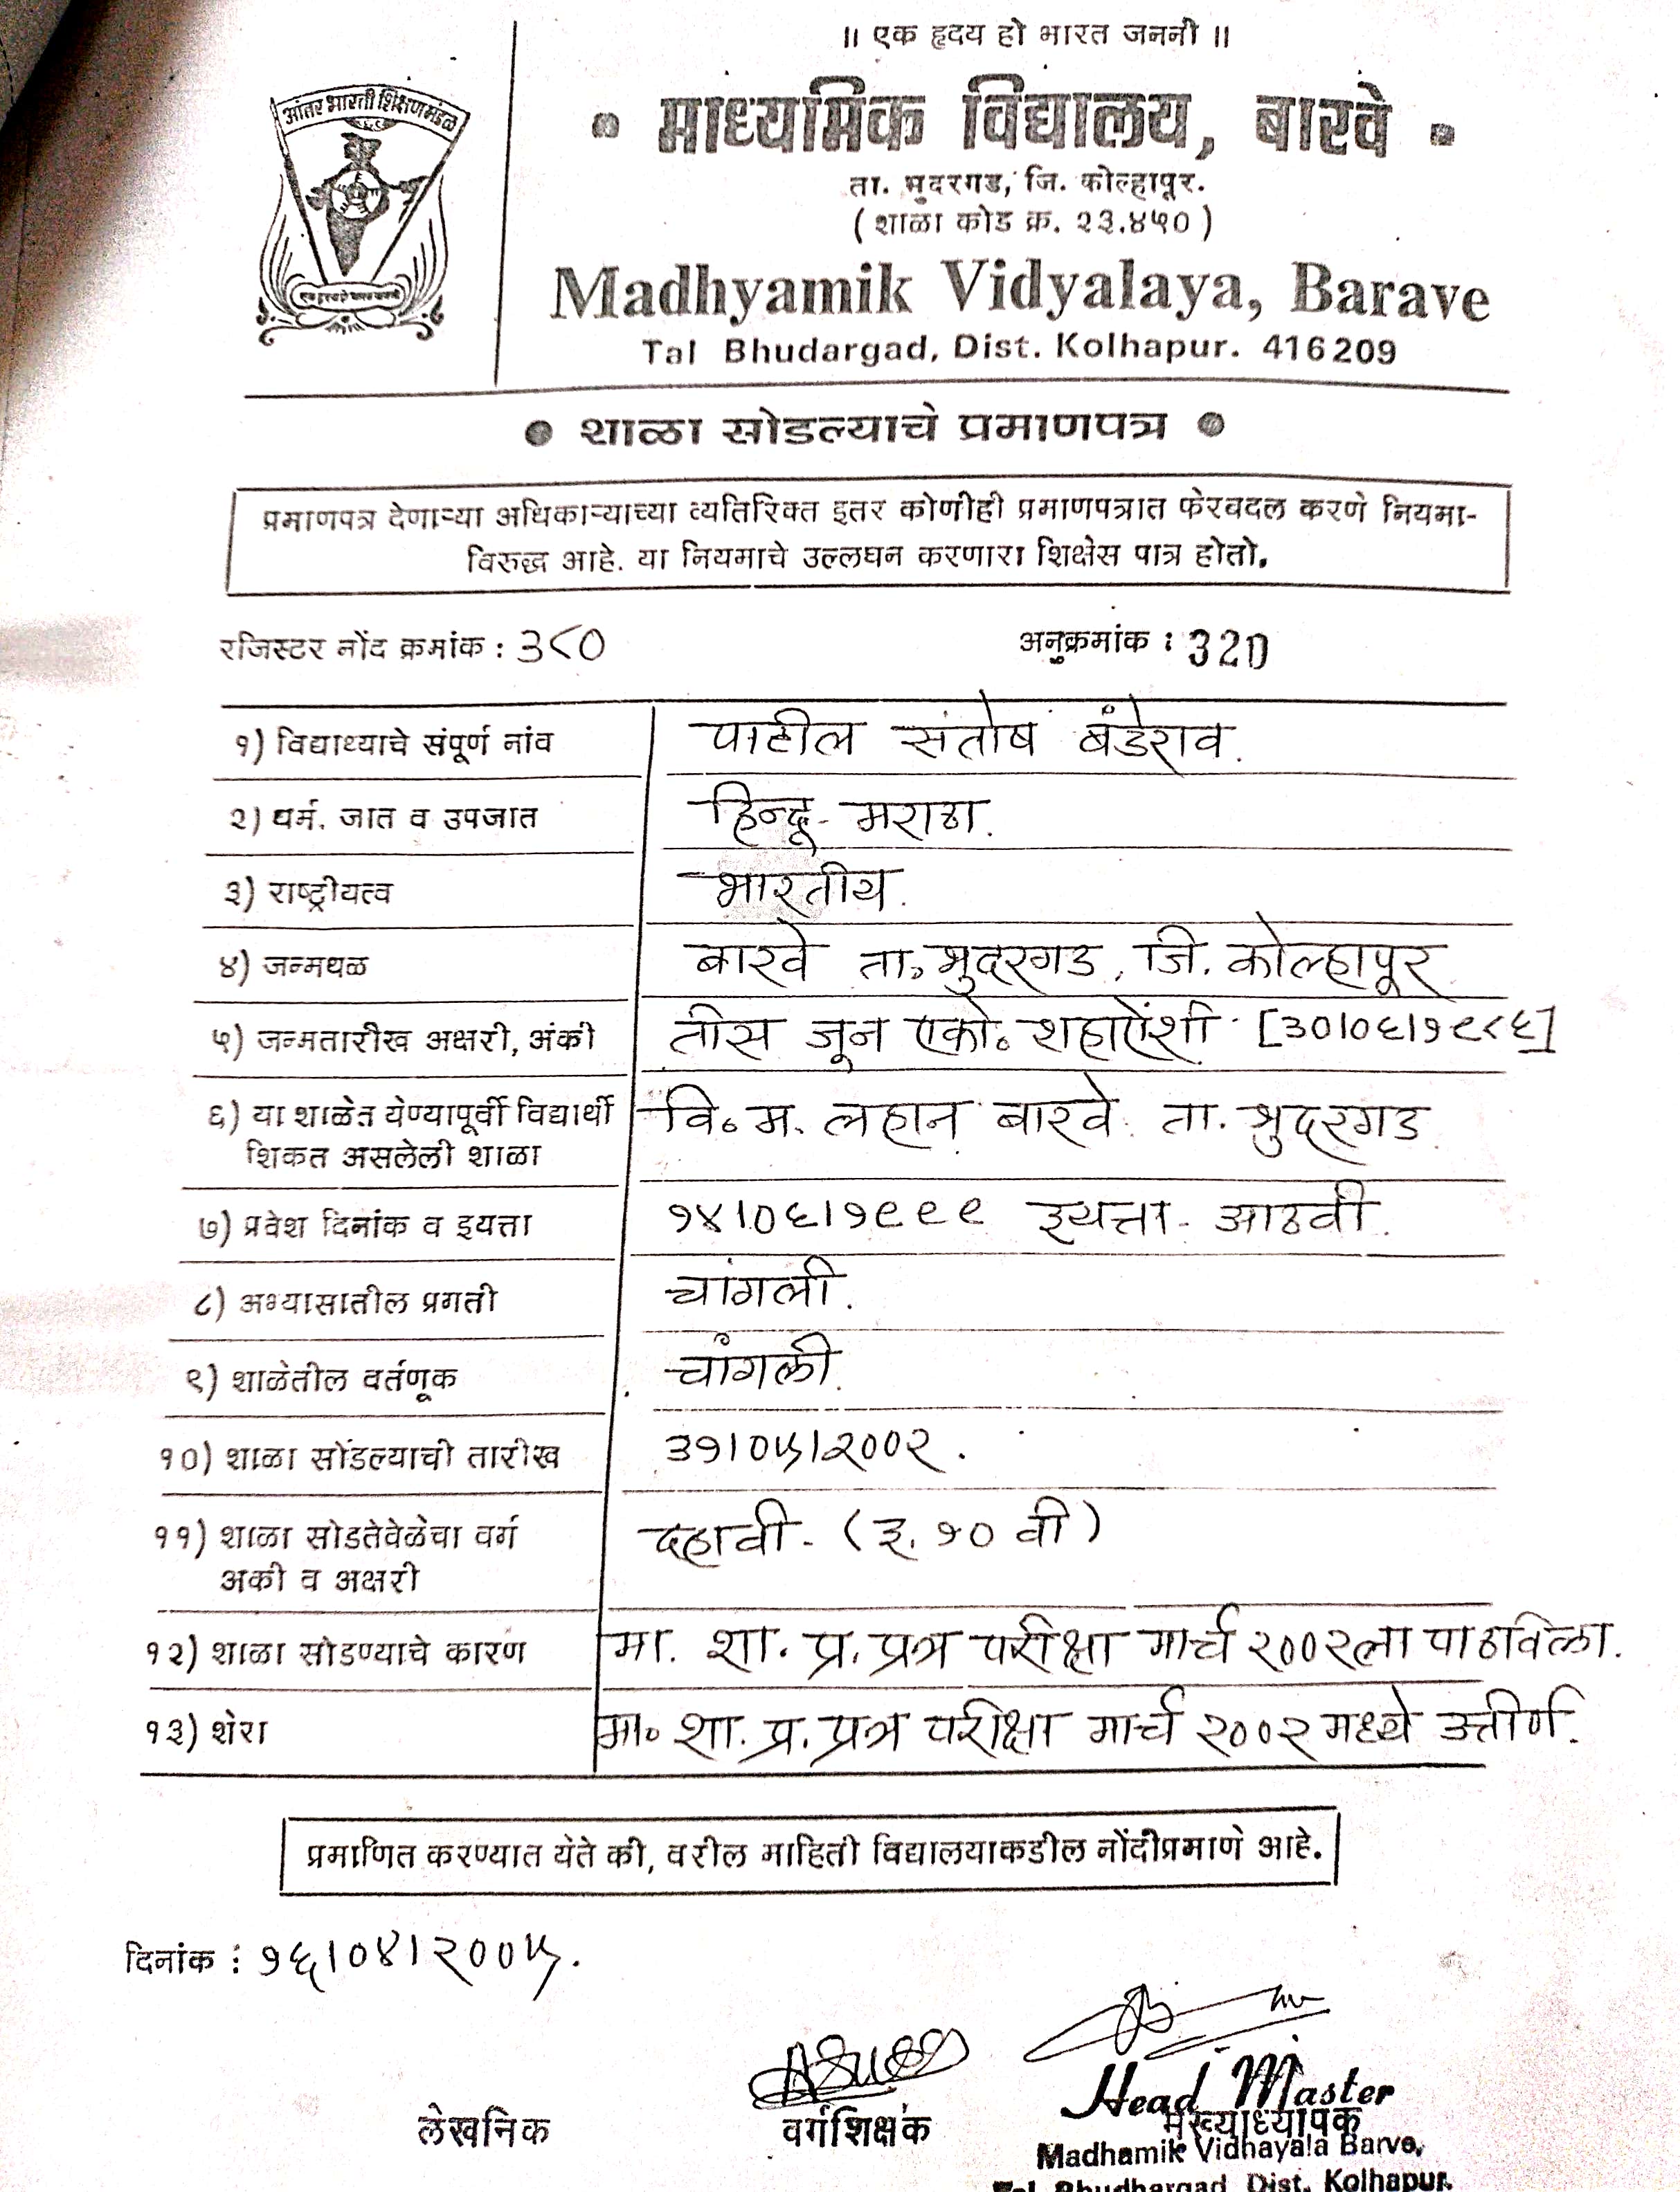 ॥ एक हृदय हो भारत जननी ॥
आंतर भारती शिक्षण मंडळ
• माध्यमिक विद्यालय, बारवे •
ता. भुदरगड, जि. कोल्हापूर.
( शाळा कोड क्र. २३.४५० )
Madhyamik Vidyalaya, Barave
Tal Bhudargad, Dist. Kolhapur. 416209
● शाळा सोडल्याचे प्रमाणपत्र ●
प्रमाणपत्र देणाऱ्या अधिकाऱ्याच्या व्यतिरिक्त इतर कोणीही प्रमाणपत्रात फेरबदल करणे नियमा-
विरुद्ध आहे. या नियमाचे उल्लघन करणारा शिक्षेस पात्र होतो.
रजिस्टर नोंद क्रमांक : ३८० अनुक्रमांक : 320
१) विद्याथ्याचे संपूर्ण नांव पाटील संतोष बंडेराव.
२) धर्म. जात व उपजात हिन्दू - मराठा.
३) राष्ट्रीयत्व भारतीय.
४) जन्मथळ बारवे ता. भुदरगड, जि. कोल्हापूर
५) जन्मतारीख अक्षरी, अंकी तीस जून एको. शहाऐंशी [३०।०६।१९८६]
६) या शाळेत येण्यापूर्वी विद्यार्थी वि. म. लहान बारवे. ता. भुदरगड
शिकत असलेली शाळा
७) प्रवेश दिनांक व इयत्ता १४।०६।१९९९ इयत्ता - आठवी.
८) अभ्यासातील प्रगती चांगली.
९) शाळेतील वर्तणूक चांगली.
१०) शाळा सोंडल्याची तारीख ३१।०५।२००२.
११) शाळा सोडतेवेळेचा वर्ग दहावी - (इ. १० वी)
अकी व अक्षरी
१२) शाळा सोडण्याचे कारण मा. शा. प्र. प्रत्र परीक्षा मार्च २००२ला पाठविला.
१३) शेरा मा. शा. प्र. प्रत्र परीक्षा मार्च २००२ मध्ये उत्तीर्ण.
प्रमाणित करण्यात येते की, वरील माहिती विद्यालयाकडील नोंदीप्रमाणे आहे.
दिनांक : १६।०४।२००५.
Head Master
लेखनिक वर्गशिक्षक मुख्याध्यापक
Madhamik Vidhayala Barve,
Tal Bhudhargad Dist. Kolhapur.